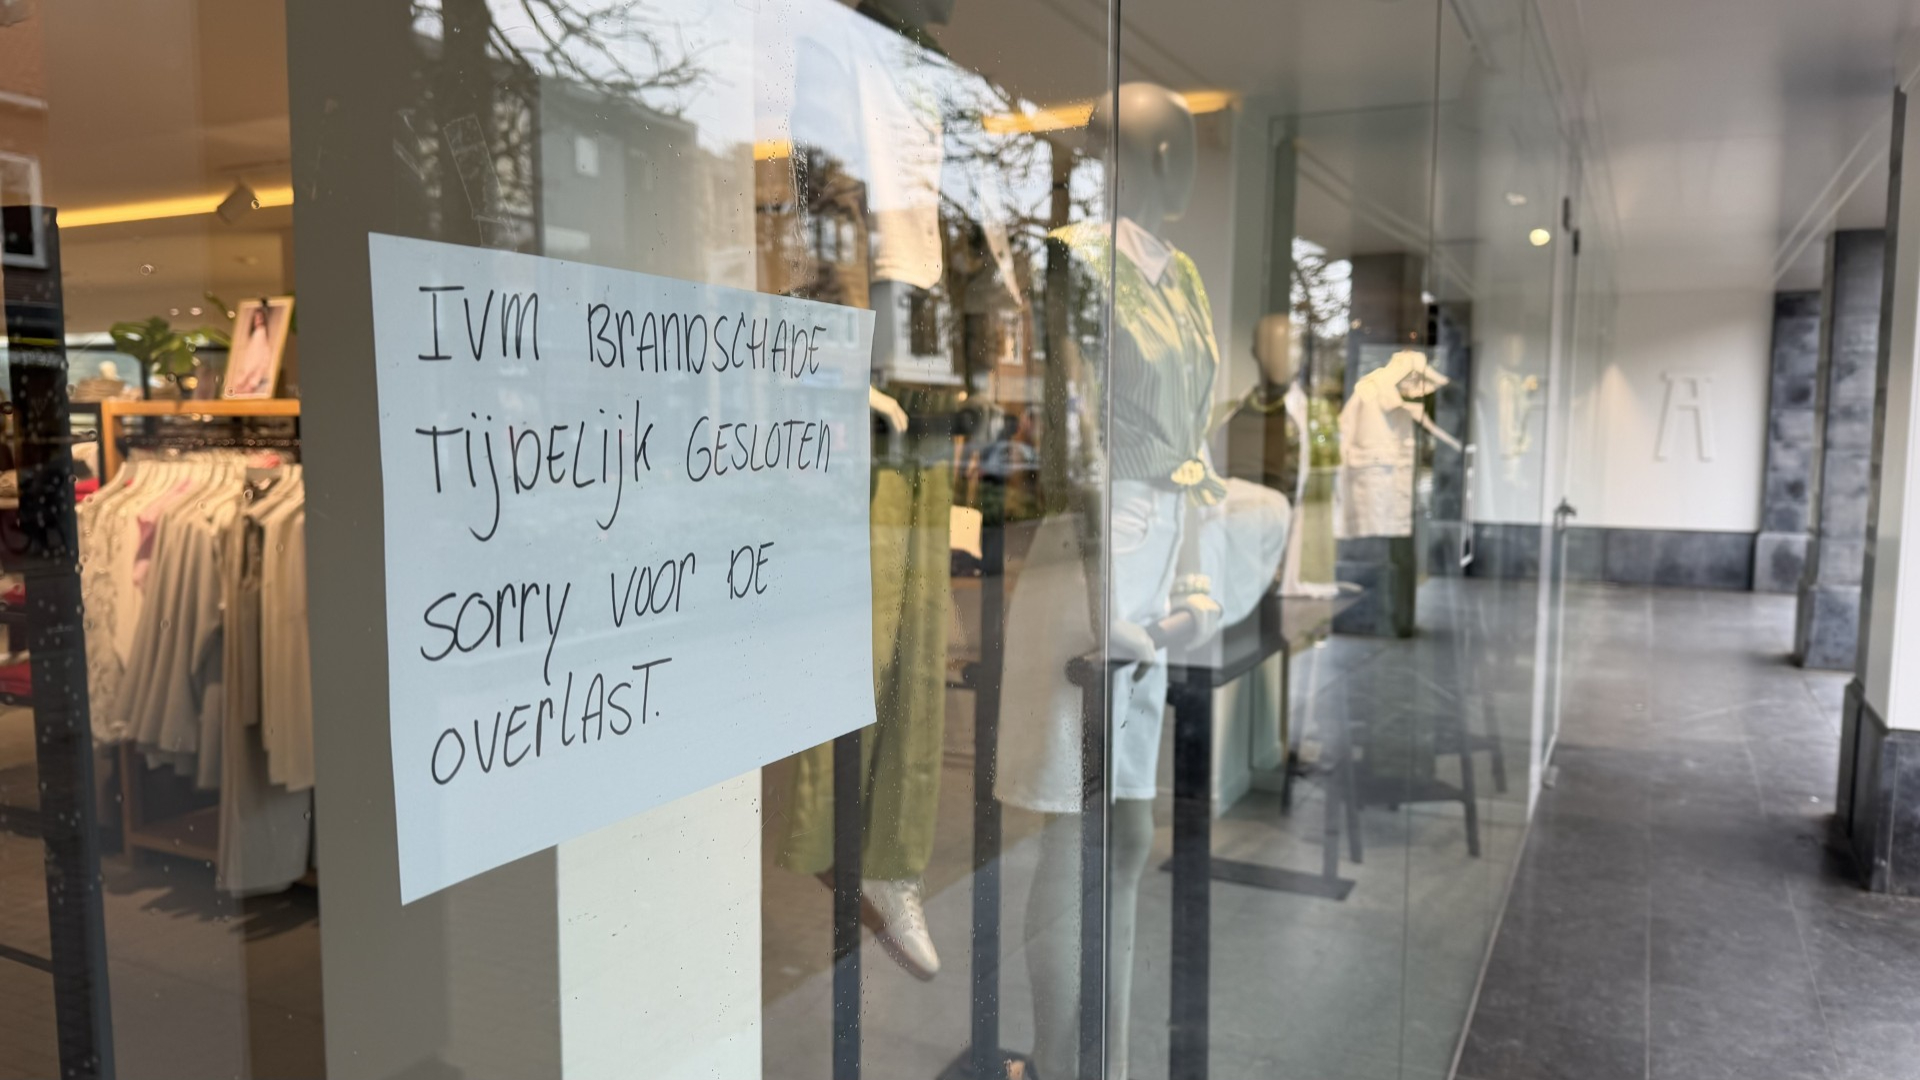 IVM BRANDSCHADE
TIJDELIJK GESLOTEN
SORRY VOOR DE
OVERLAST.